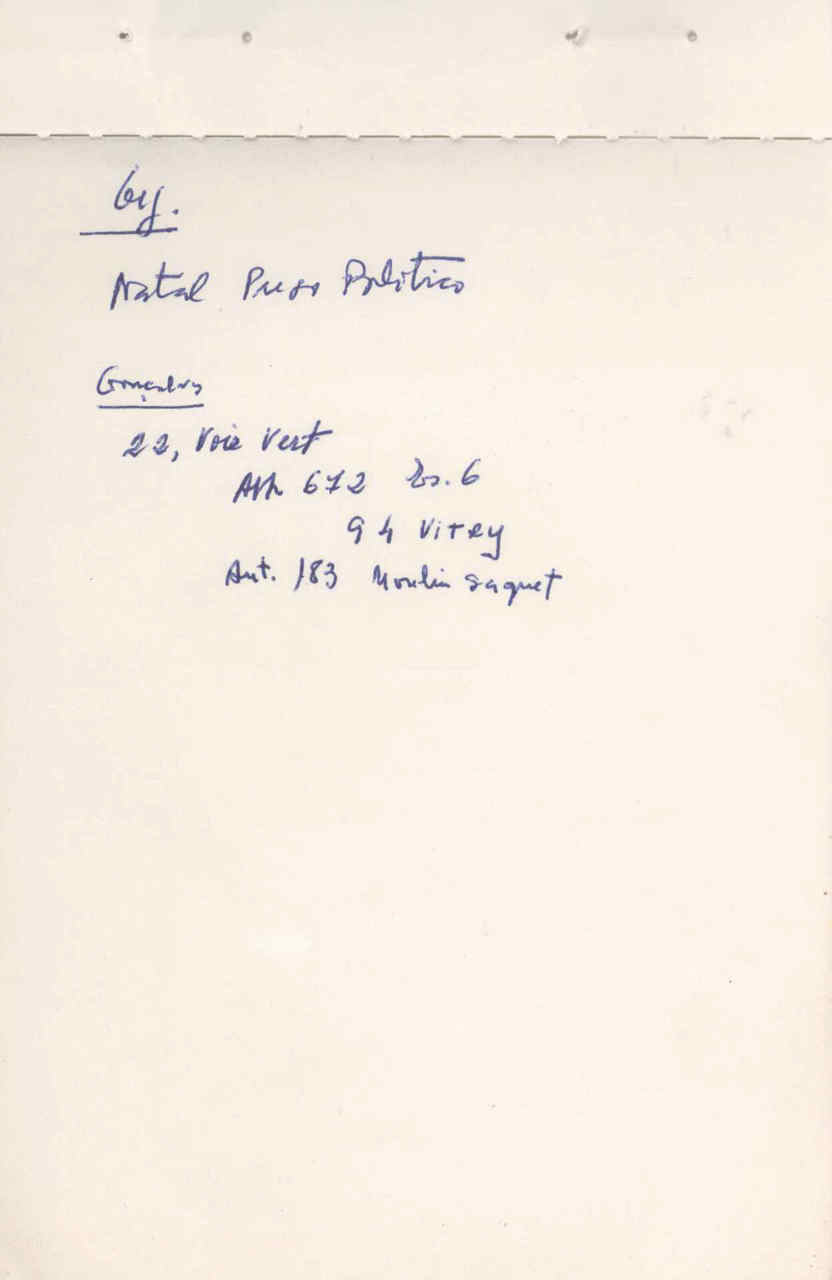 69.
Natal Preso Político
Gonçalves
22, Voie Vert
Aph 672 Es. 6
94 Vitry
Aut. 183 Moulin saquet